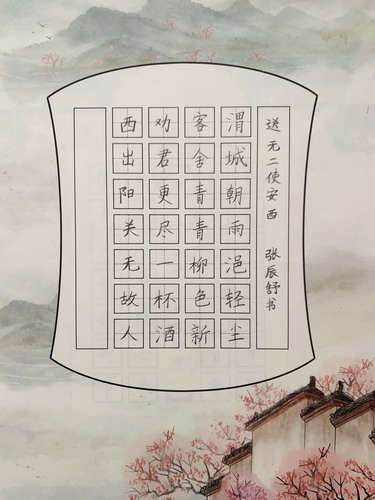 送无二使安西 张辰舒书
渭城朝雨浥轻尘
客舍青青柳色新
劝君更尽一杯酒
西出阳关无故人